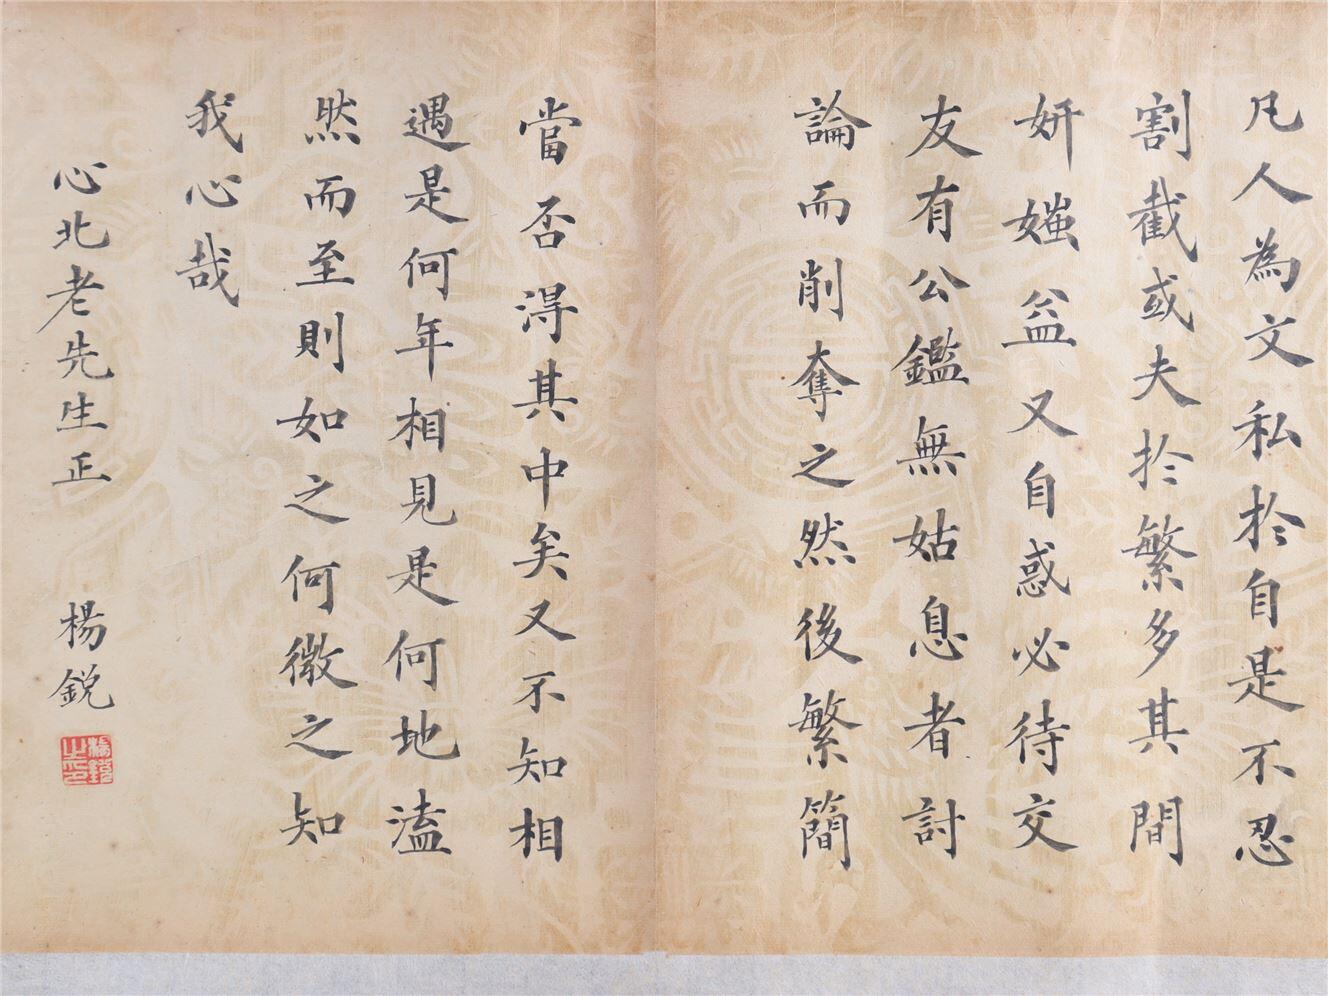 凡人為文私於自是不忍
割截或夫於繁多其間
妍媸益又自惑必待交
友有公鑑無姑息者討
論而削奪之然後繁簡
當否得其中矣又不知相
遇是何年相見是何地溘
然而至則如之何微之知
我心哉
心北老先生正
楊銳
楊銳之印